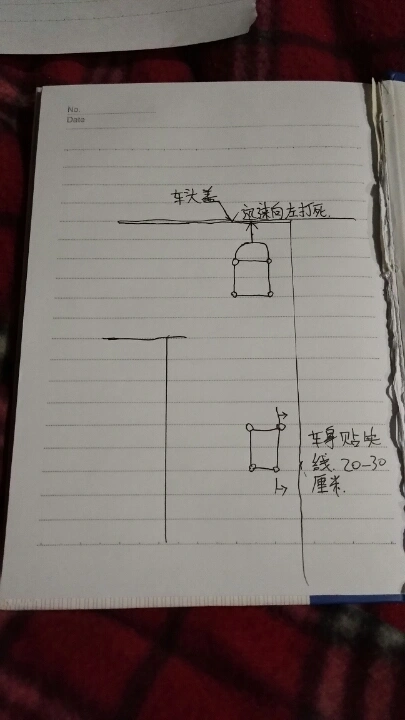 No.
Date
车头盖
迅速向左打死.
车身贴
线. 20-30
厘米.